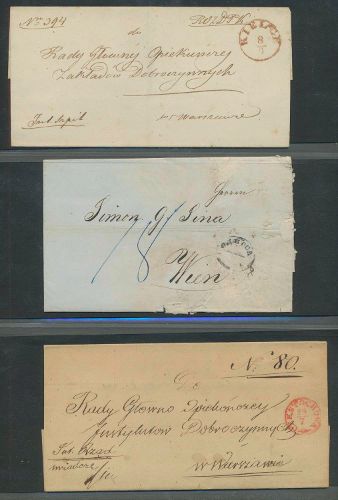 No 394
KIELCE
8/7
do
Rady Głównej Opiekuńczej
Zakładów Dobroczynnych
w Warszawie
Herrn
Simon G. Sina
78
Wien
No 80.
Do
Rady Głowno Opiekończey
Instytutów Dobroczynnych
w Warszawie